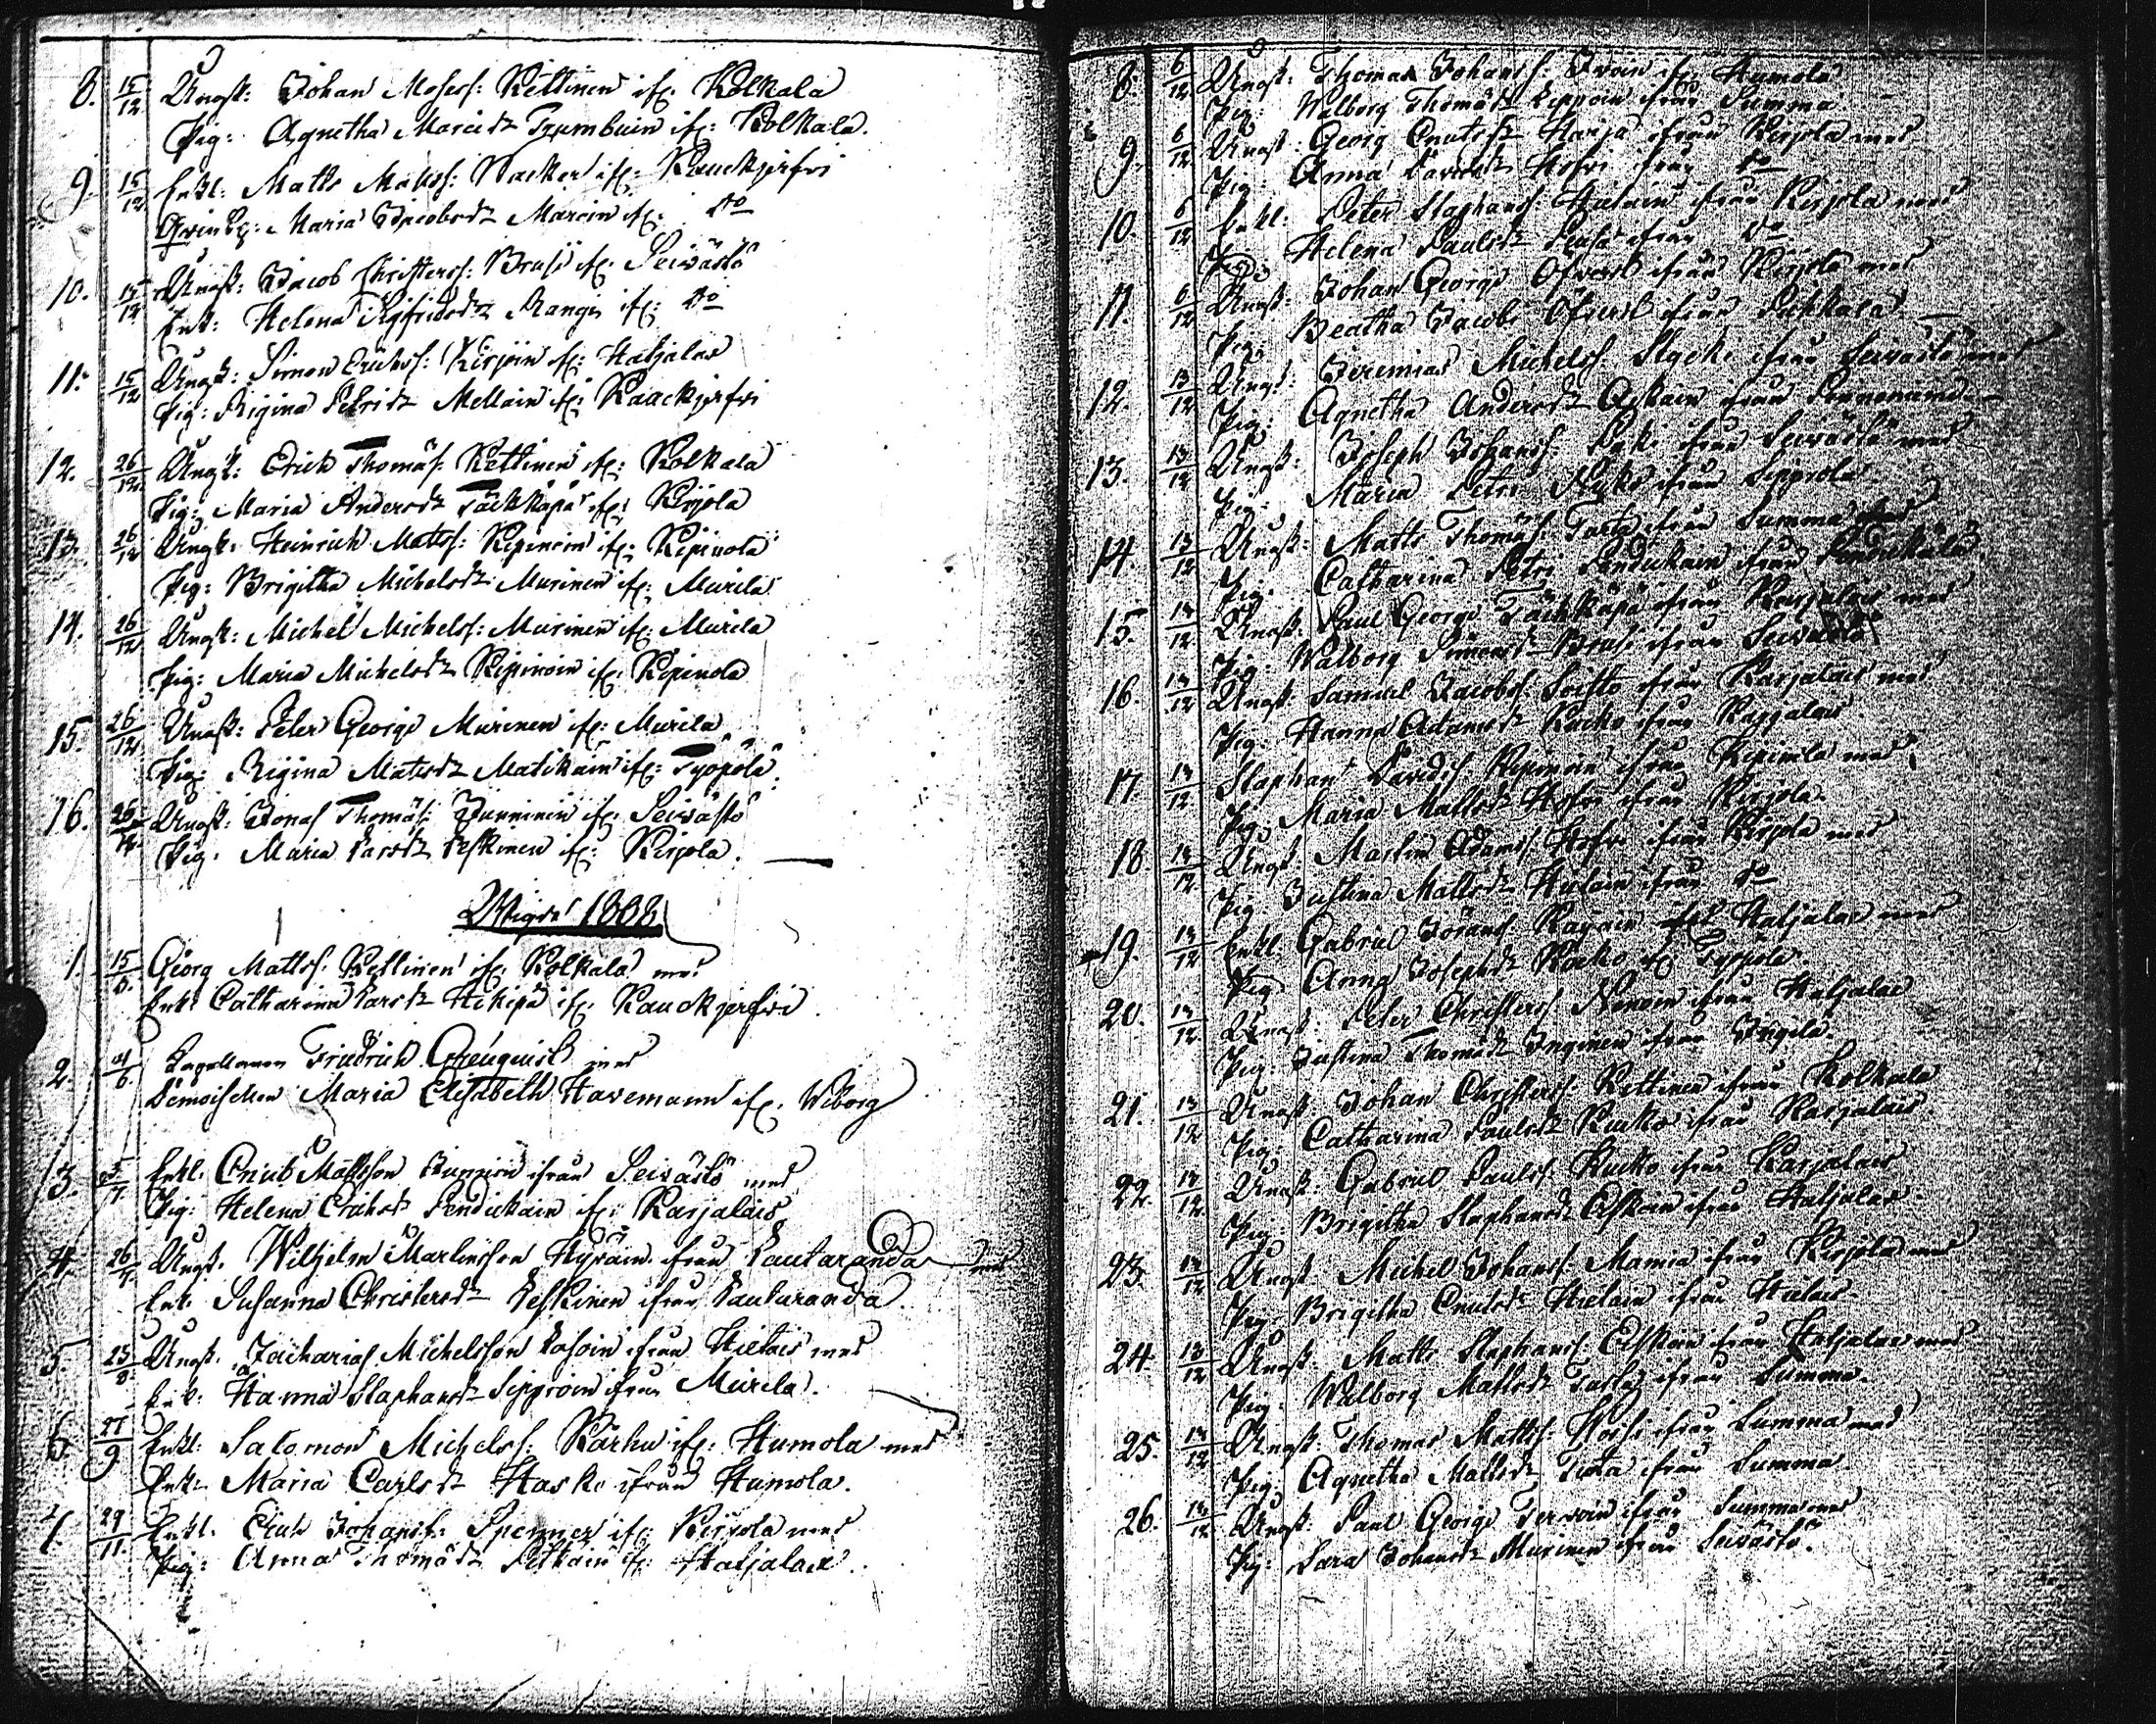 8. 15/12 Ungk: Johan Mosess: Kettinen ifr: Kolkala
Pig: Agnetha Marcidr ifr: Kolkala.
9. 15/12 Enkl: Matts Matss: Wacker ifr: Rauckjerfvi
Qvinsp: Maria Jacobsdr Maroin ifr: do
10. 15/12 Ungk: Jacob Christerss: Brusi ifr: Seivästö
Enk: Helena Sigfridsdr Rangin ifr: do
11. 15/12 Ungk: Simon Erichss: Kirjoin ifr: Hatjalax
Pig: Rigina Petridr Mellain ifr: Raackjerfvi
12. 26/12 Ungk: Erich Thomäs: Kettinen ifr: Kolkala
Pig: Maria Andersdr Täckkäpä ifr: Kirjola
13. 26/12 Ungk: Heinrich Matss: Kipinoin ifr: Kipinola
Pig: Brigitha Michelsdr Murinen ifr: Murila
14. 26/12 Ungk: Michel Michelss: Murinen ifr: Murila
Pig: Maria Michelsdr Kipinoin ifr: Kipinola
15. 26/12 Ungk: Peter Georgs Murinen ifr: Murila
Pig: Rigina Matsdr Matikain ifr: Tyopölä
16. 26/12 Ungk: Jonas Thomäs: Junninen ifr: Seivästö
Pig: Maria Larsdr Peskinen ifr: Kirjola.
Wigda 1808
1. 15/5. Georg Mattss. Kettinen ifr: Kolkala med
Enk: Catharina Larsdr Hekipä ifr: Rauckjerfvi.
2. 4/6. Capellanen Friedrich med
Demoisellen Maria Elisabeth Havemann ifr: Wiborg
3. 5/7. Enkl: Cnut Mattsson Junnien ifrån Seivästö med
Pig: Helena Erichsdr Pendickain ifr: Karjalais
4. 26/7. Ungk. Wilhelm Martinsson Hyväin ifrån Lautaranda med
Enk: Susanna Christersdr Peskinen ifrån Lautaranda.
5. 25/8. Ungk. Zacharias Michelsson Pasoin ifrån Hietais med
Enk: Hanna Staphansdr Sipproin ifrån Murila.
6. 27/9 Enkl: Salomon Michelss: Karhu ifr: Humola med
Enk: Maria Carlsdr Hasko ifrån Humola.
7. 29/11. Enkl. Erich Johanss: Spenner ifr: Kirjola med
Pig: Anna Thomädr Pitkäin ifr: Hatjalax.
8. 6/12 Ungk: Thomas Johanss: Ivoin ifr: Humola
Pig: Walborg Thomädr Lippoin ifrån Summa.
9. 6/12 Ungk: Georg Cnutss Harja ifrån Kirjola med
Pig: Anna Davidsdr Hofvi ifrån do
10. 6/12 Enkl: Peter Staphanss: Hielain ifrån Kirjola med
Pig: Helena Paulsdr ifrån do
11. 6/12 Ungk: Johan Georgs Öfverst ifrån Kirjola med
Pig: Beatha Jacobs Öfverst ifrån Pihkala
12. 13/12 Ungk: Jeremias Michelss. Styck ifrån Seivästö med
Pig: Agnetha Andersdr ifrån
13. 13/12 Ungk: Joseph Johanss: ifrån Seivästö med
Pig: Maria Petri ifrån Sipprola
14. 13/12 Ungk: Matts Thomäs: ifrån Summa med
Pig. Catharina Petri Pendickain ifrån Pendickälä
15. 13/12 Ungk: Paul Georgs Täckkäpä ifrån Karjalais med
Pig Walborg Simonsdr Brusi ifrån Seivästö
16. 13/12 Ungk: Samuel Jacobss: ifrån Karjalais med
Pig: Hanna Adamsdr Kucko ifrån Karjalais.
17. 13/12 Staphan Davidss: Kipinoin ifrån Kipinola med
Pig: Maria Mattsdr Hofvi ifrån Kirjola.
18 13/12 Ungk Martin Adamss Hofvi ifrån Kirjola med
Pig: Justina Mattsdr Hielain ifrån do
19. 13/12 Enkl: Gabriel Göranss: ifr Hatjalax med
Pig Anna Josephsdr Kocko ifr Tyopölä.
20. 13/12 Ungk: Peter Christerss ifrån Hatjalax
Pig: Justina Thomädr Inginen ifrån Ingila.
21. 13/12 Ungk: Johan Christerss: Kettinen ifrån Kolkala
Pig: Catharina Paulsdr Kucko ifrån Karjalais.
22. 13/12 Ungk: Gabriel Paulss: Kucko ifrån Karjalais
Pig: Brigitha Staphansdr ifrån Hatjalax.
23. 13/12 Ungk Michel Johanss: Mamia ifrån Kirjola med
Pig: Brigitha Cnutsdr Hielain ifrån Hielais
24. 13/12 Ungk: Matts Staphanss: ifrån Hatjalax med
Pig: Walborg Mattsdr ifrån Summa.
25. 13/12 Ungk: Thomas Mattss: ifrån Summa med
Pig: Agnetha Mattsdr ifrån Summa
26. 13/12 Ungk: Paul Georgs Tervoin ifrån Summa med
Pig: Sara Johansdr Murinen ifrån Seivästö.